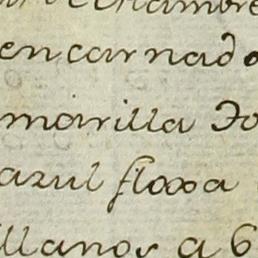 de chambre
encarnado
marilla Do
azul floxa
illanos a 6